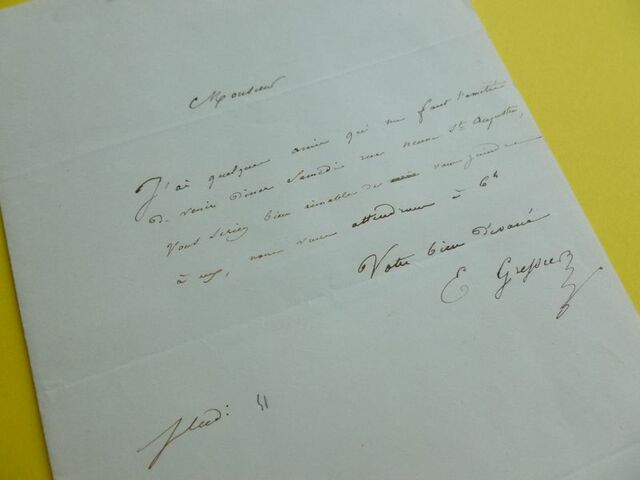 Monsieur
J'ai quelques amis qui me font l'amitié
de venir diner Samedi rue neuve St Augustin,
Vous seriez bien aimable de vous joindre
à eux, nous vous attendrons à 6h
Votre bien dévoué
E Gressier
Jeudi 31